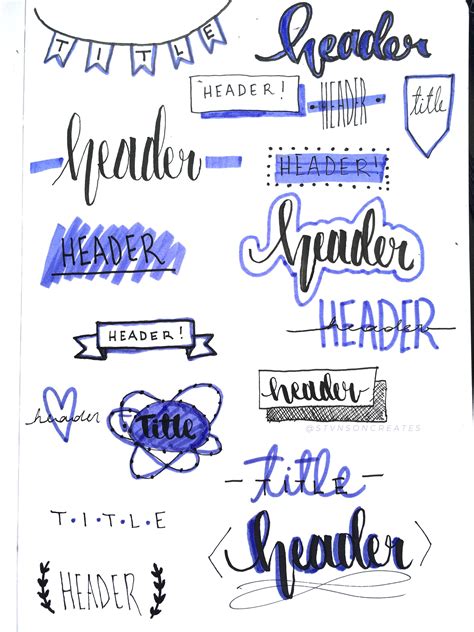 TITLE
header
HEADER!
HEADER
title
header
HEADER!
HEADER
header
HEADER
header
HEADER!
header
header
Title
@STVNSONCREATES
title
TITLE
T·I·T·L·E
header
HEADER